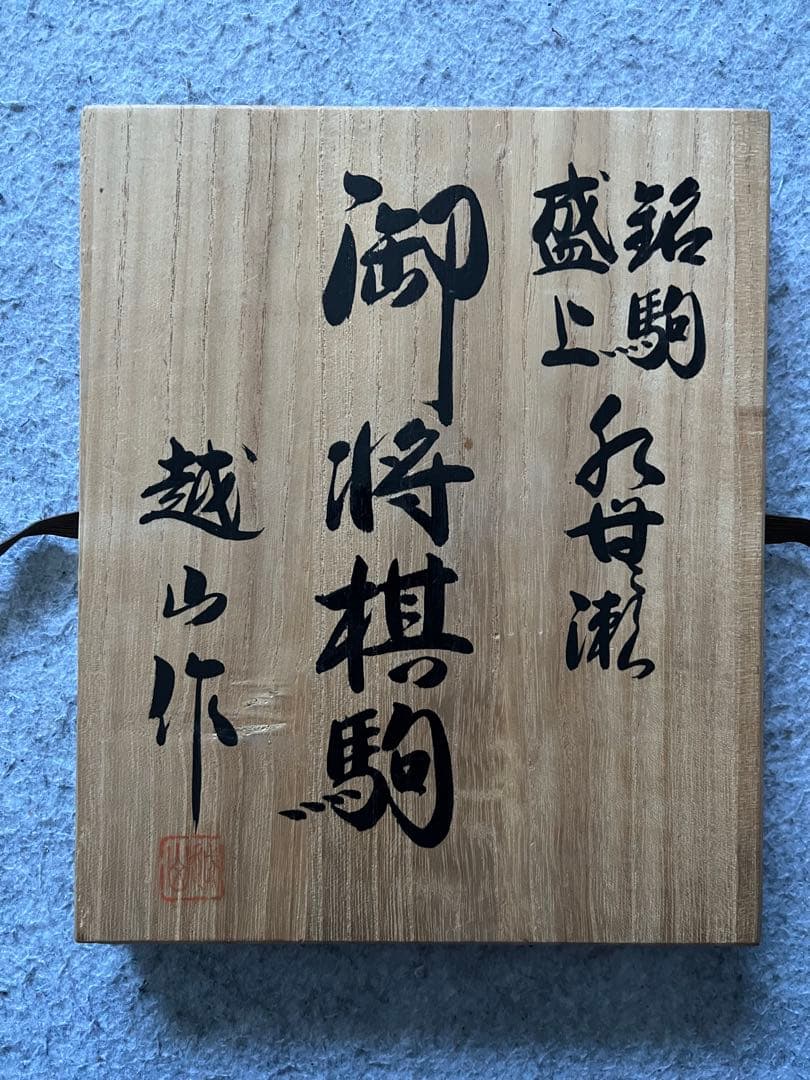 銘駒
盛上
水無瀬
御将棋駒
越山作